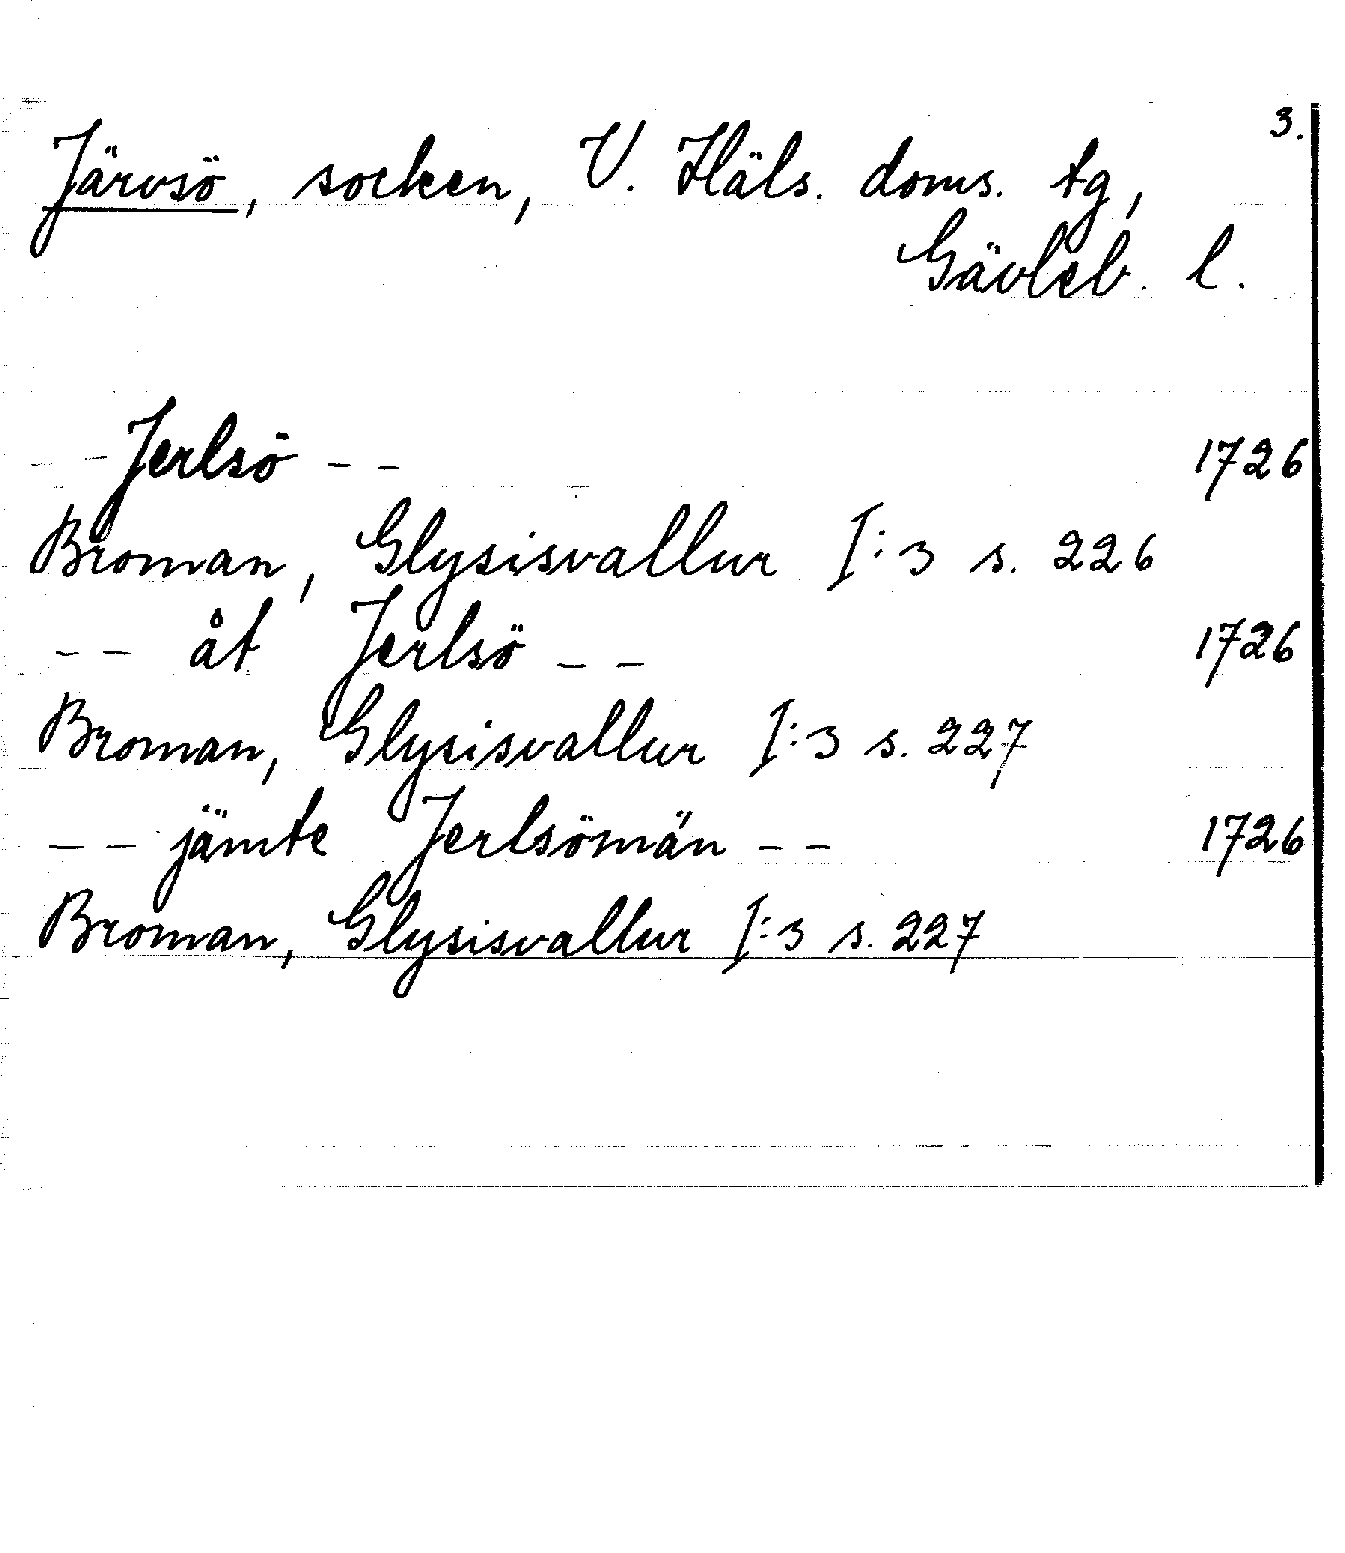 3.
Järvsö, socken, V. Häls. doms. tg,
Gävleb. l.
- - Jerlsö - - 1726
Broman, Glysisvallur I:3 s. 226
- - åt Jerlsö - - 1726
Broman, Glysisvallur I:3 s. 227
- - jämte Jerlsömän - - 1726
Broman, Glysisvallur I:3 s. 227